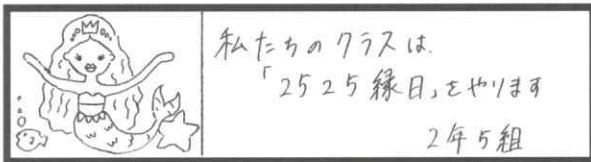 私たちのクラスは
「2525縁日」をやります
2年5組